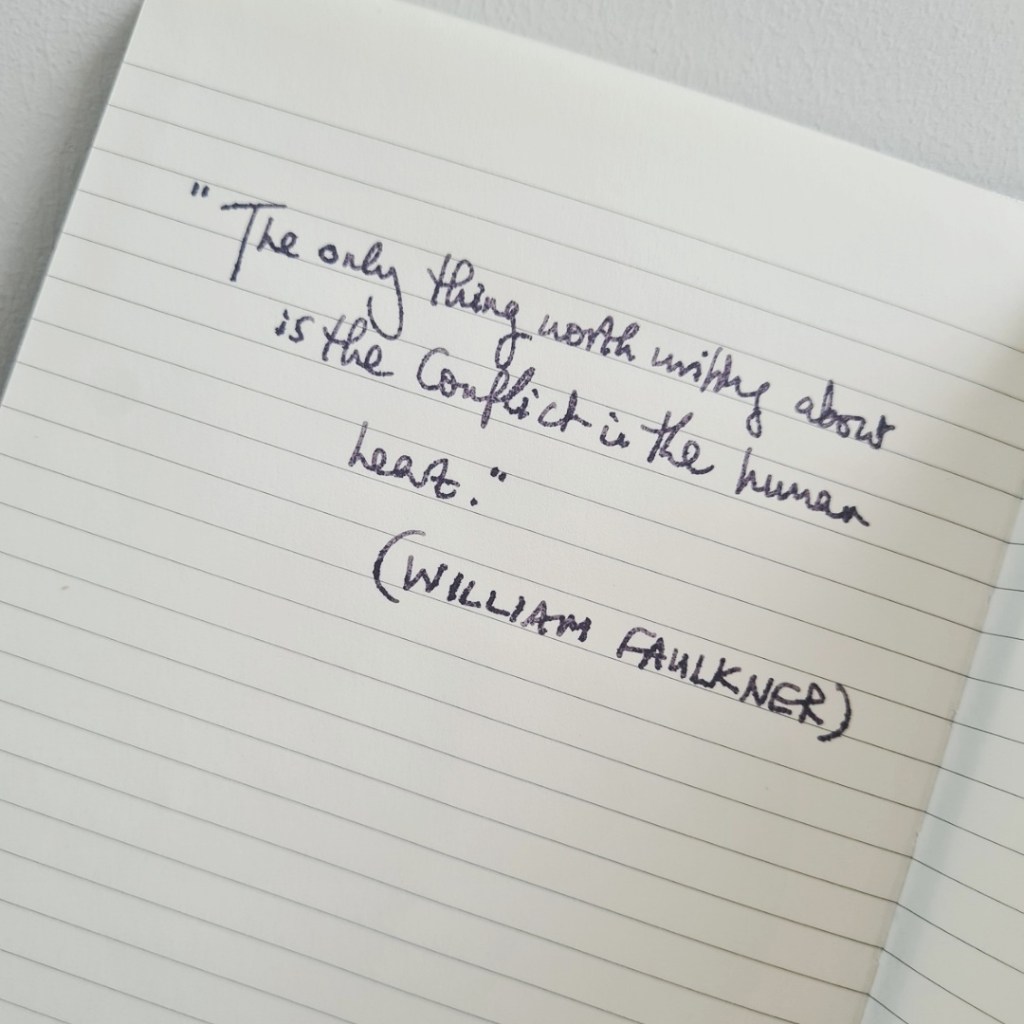 "The only thing worth writing about
is the Conflict in the human
heart."
(WILLIAM FAULKNER)